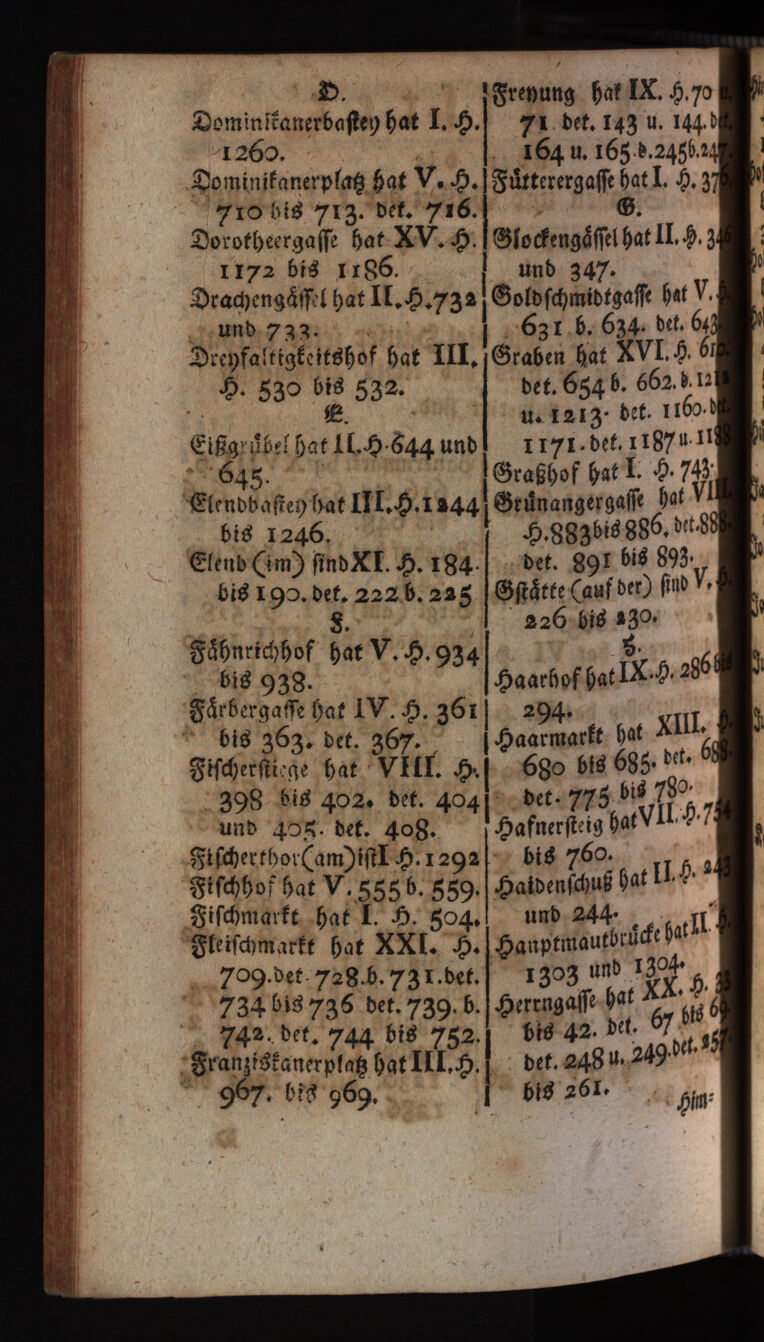 D.
Dominikanerbastey hat I. H.
1260.
Dominikanerplatz hat V. H.
710 bis 713. det. 716.
Dorotheergasse hat XV. H.
1172 bis 1186.
Drachengässel hat II. H. 732
und 733.
Dreyfaltigkeitshof hat III.
H. 530 bis 532.
E.
Eißgrübel hat II. H. 644 und
645.
Elendbastey hat III. H. 1244
bis 1246.
Elend (im) sind XI. H. 184.
bis 190. det. 222 b. 225
F.
Fähnrichhof hat V. H. 934
bis 938.
Färbergasse hat IV. H. 361
bis 363. det. 367.
Fischerstiege hat VIII. H.
398 bis 402. det. 404
und 405. det. 408.
Fischerthor (am) ist I H. 1292
Fischhof hat V. 555 b. 559.
Fischmarkt hat I. H. 504.
Fleischmarkt hat XXI. H.
709. det. 728. b. 731. det.
734 bis 736 det. 739. b.
742. det. 744 bis 752.
Franziskanerplatz hat III. H.
967. bis 969.
Freyung hat IX. H. 70
71 det. 143 u. 144.
164 u. 165 d. 245 b.
Fütterergasse hat I. H.
G.
Glockengässel hat II. H.
und 347.
Goldschmidtgasse hat V.
631 b. 634. det.
Graben hat XVI. H.
det. 654 b. 662. d.
u. 1213. det. 1160.
1171. det. 1187 u.
Graßhof hat I. H. 743.
Grünangergasse hat
H. 883 bis 886. det.
det. 891 bis 893.
Gstätte (auf der) sind V.
226 bis 230.
H.
Haarhof hat IX. H. 286
294.
Haarmarkt hat XIII.
680 bis 685. det.
det. 775 bis 780.
Hafnersteig hat VII. H.
bis 760.
Haidenschuß hat II. H.
und 244.
Hauptmautbrücke hat II.
1303 und 1304.
Herrngasse hat XX. H.
bis 42. det. 67 bis
det. 248 u. 249. det.
bis 261.
Him-